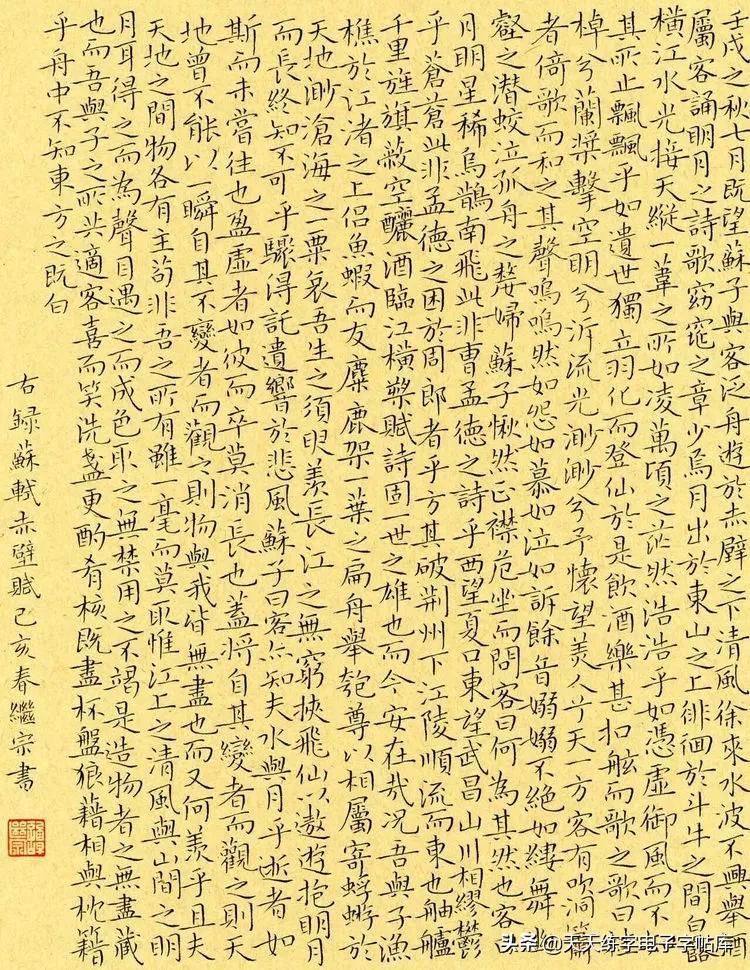 壬戌之秋七月既望蘇子與客泛舟遊於赤壁之下清風徐來水波不興舉酒
屬客誦明月之詩歌窈窕之章少焉月出於東山之上徘徊於斗牛之間白露
橫江水光接天縱一葦之所如凌萬頃之茫然浩浩乎如憑虛御風而不
其所止飄飄乎如遺世獨立羽化而登仙於是飲酒樂甚扣舷而歌之歌曰
棹兮蘭槳擊空明兮泝流光渺渺兮予懷望美人兮天一方客有吹洞簫
者倚歌而和之其聲嗚嗚然如怨如慕如泣如訴餘音嫋嫋不絕如縷舞幽
壑之潛蛟泣孤舟之嫠婦蘇子愀然正襟危坐而問客曰何為其然也客曰
月明星稀烏鵲南飛此非曹孟德之詩乎西望夏口東望武昌山川相繆鬱
乎蒼蒼此非孟德之困於周郎者乎方其破荊州下江陵順流而東也舳艫
千里旌旗蔽空釃酒臨江橫槊賦詩固一世之雄也而今安在哉況吾與子漁
樵於江渚之上侶魚蝦而友麋鹿架一葉之扁舟舉匏尊以相屬寄蜉蝣於
天地渺滄海之一粟哀吾生之須臾羨長江之無窮挾飛仙以遨遊抱明月
而長終知不可乎驟得託遺響於悲風蘇子曰客亦知夫水與月乎逝者如
斯而未嘗往也盈虛者如彼而卒莫消長也蓋將自其變者而觀之則天
地曾不能以一瞬自其不變者而觀之則物與我皆無盡也而又何羨乎且夫
天地之間物各有主茍非吾之所有雖一毫而莫取惟江上之清風與山間之明
月耳得之而為聲目遇之而成色取之無禁用之不竭是造物者之無盡藏
也而吾與子之所共適客喜而笑洗盞更酌肴核既盡杯盤狼藉相與枕籍
乎舟中不知東方之既白
右録蘇軾赤壁賦己亥春繼宗書
头条@天天练字电子字帖库